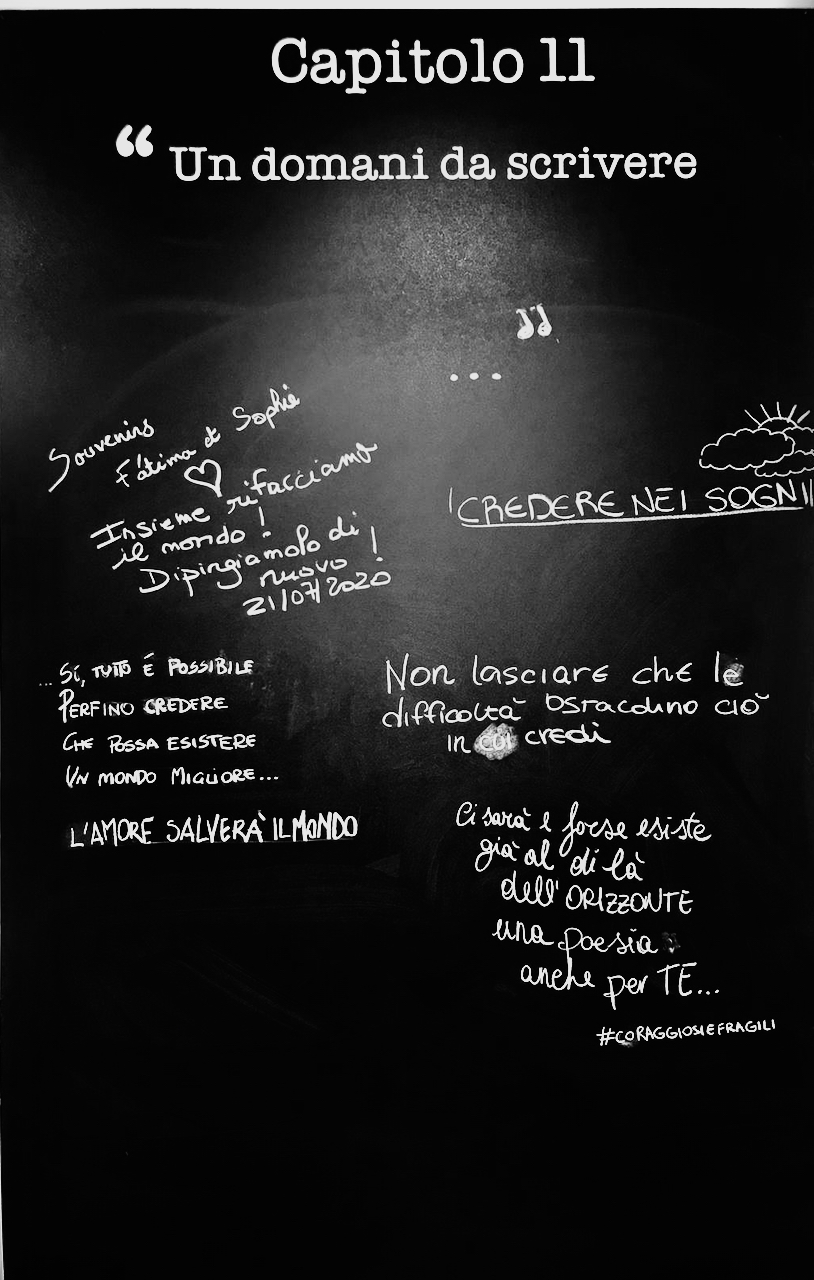 Capitolo 11
“ Un domani da scrivere
...
Souvenirs
Fátima et Sophie
Insieme rifacciamo
il mondo!
Dipingiamolo di
nuovo!
21/07/2020
!CREDERE NEI SOGNI!
...SÍ, TUTTO É POSSIBILE
PERFINO CREDERE
CHE POSSA ESISTERE
UN MONDO MIGLIORE...
L'AMORE SALVERA' IL MONDO
Non lasciare che le
difficoltà ostracolino ciò
in cui credi
Ci sarà e forse esiste
già al di là
dell'ORIZZONTE
una poesia
anche per TE...
#CORAGGIOSIEFRAGILI